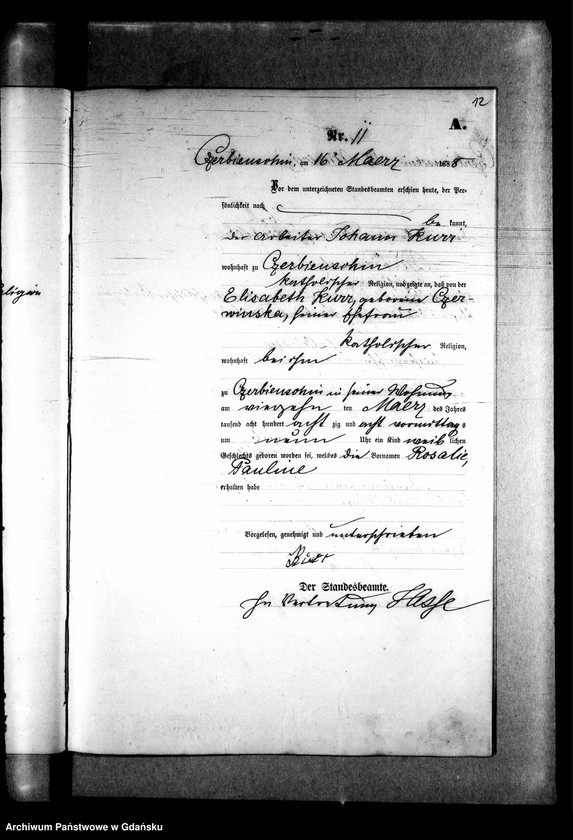 12
A.
Nr. 11
Czerbienschin, am 16 Maerz 1888
Vor dem unterzeichneten Standesbeamten erschien heute, der Per-
sönlichkeit nach
be kannt,
der Arbeiter Johann Kurr
wohnhaft zu Czerbienschin
katholischer Religion, und zeigte an, daß von der
Elisabeth Kurr, geborene Czer-
winska, seiner Ehefrau
katholischer Religion,
wohnhaft bei ihm
zu Czerbienschin in seiner Wohnung
am vierzehn ten Maerz des Jahres
tausend acht hundert acht zig und acht vormittag s
um neun Uhr ein Kind weib lichen
Geschlechts geboren worden sei, welches die Vornamen Rosalie,
Pauline
erhalten habe
Vorgelesen, genehmigt und unterschrieben
Kurr
Der Standesbeamte.
In Vertretung Hasse
eligion
Archiwum Państwowe w Gdańsku